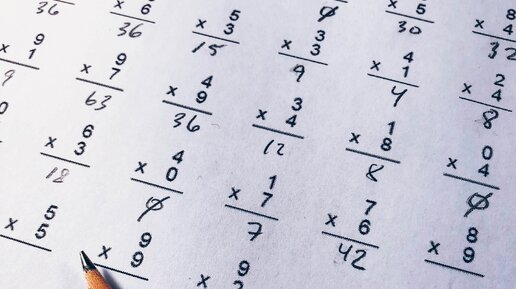 8
× 5 × 4
0 30 32
5 3 4 2
× 6 × 3 × 3 × 1 × 4
36 36 15 9 4 8
9 9 4 3 1 0
× 1 × 7 × 9 × 4 × 8 × 4
9 63 36 12 8 0
0 6 4 1 7 8
× 3 × 0 × 7 × 6 × 9
18 0 7 42
5 9 9
× 5 × 9 ×